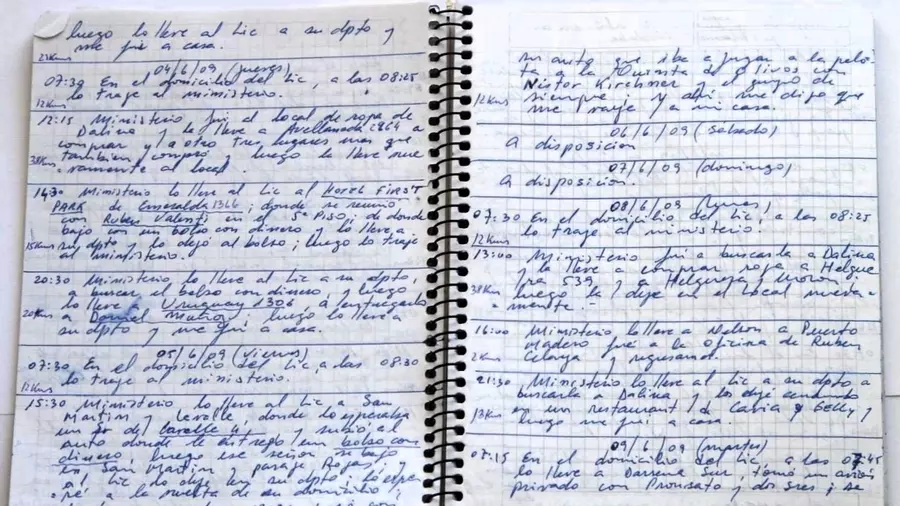 luego lo lleve al Lic a su dpto y
me fui a casa.
23Kms
04/6/09 (jueves)
07:30 En el domicilio del Lic, a las 08:25
lo traje al ministerio.
12Kms
12:15 Ministerio fui al local de ropa de
Dalina y la lleve a Avellaneda 2964 a
comprar y a otro tres lugares mas que
tambien compró y luego la lleve nue
vamente al local.
38Kms
14:30 Ministerio lo lleve al Lic al HOTEL FIRST
PARK de Esmeralda 1366; donde se reunió
con Ruben Valenti en el 5º PISO; de donde
bajo con un bolso con dinero y lo lleve a
su dpto y lo dejó al bolso; luego lo traje
al ministerio.
15Kms
20:30 Ministerio lo lleve al Lic a su dpto,
a buscar el bolso con dinero y luego
lo lleve a Uruguay 1306, a entregarlo
a Daniel Muñoz; luego lo lleve a
su dpto y me fui a casa.
20Kms
05/6/09 (viernes)
07:30 En el domicilio del Lic, a las 08:30
lo traje al ministerio.
12Kms
15:30 Ministerio lo lleve al Lic a San
Martin y Lavalle, donde lo esperaba
un Sr de Lavalle y subió al
auto donde le entrego un bolso con
dinero, luego ese señor se bajo
en San Martin y paraje Rojas, y
al Lic lo deje en su dpto; lo espe
ré a la vuelta de su domicilio
su auto que iba a jugar a la pelo
ta a la Quinta de Olivos con
Néstor Kirchner y el grupo de
siempre y ahi me dijo que
me vaya a mi casa.
12Kms
06/6/09 (sabado)
A disposicion
07/6/09 (domingo)
A disposicion.
08/6/09 (lunes)
07:30 En el domicilio del Lic, a las 08:25
lo traje al ministerio.
12Kms
13:00 Ministerio fui a buscarla a Dalina
y la lleve a comprar ropa a Helgue
ra 539 y a Helguera y Moron;
luego la deje en el local nueva-
mente.
38Kms
16:00 Ministerio lo lleve a Nelson a Puerto
Madero fue a la oficina de Ruben
y regresamos.
2Kms
21:30 Ministerio lo lleve al Lic a su dpto a
buscarla a Dalina y los deje cenando
en un restaurant de Cavia y Gelly y
luego me fui a casa.
13Kms
09/6/09 (martes)
07:15 En el domicilio del Lic a las 07:45
lo lleve a Darsena Sur, tomó un avión
privado con y dos sres; se